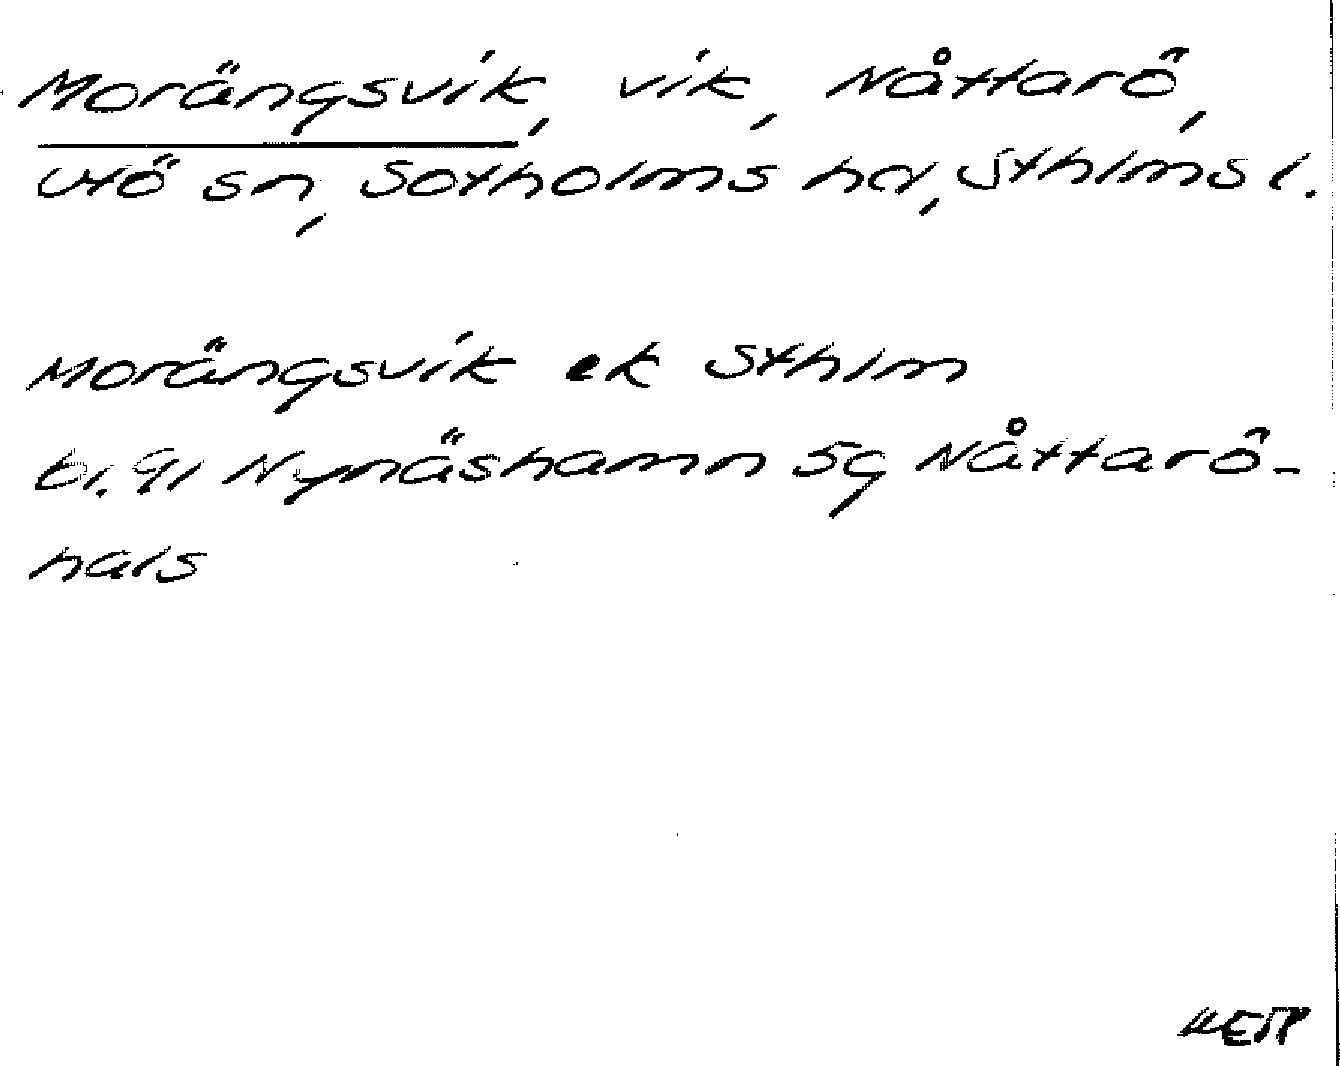 Morängsvik, vik, Nåttarö,
Utö sn, Sotholms hd, Sthlms l.
Morängsvik ek Sthlm
bl. 91 Nynäshamn 5g Nåttarö-
hals